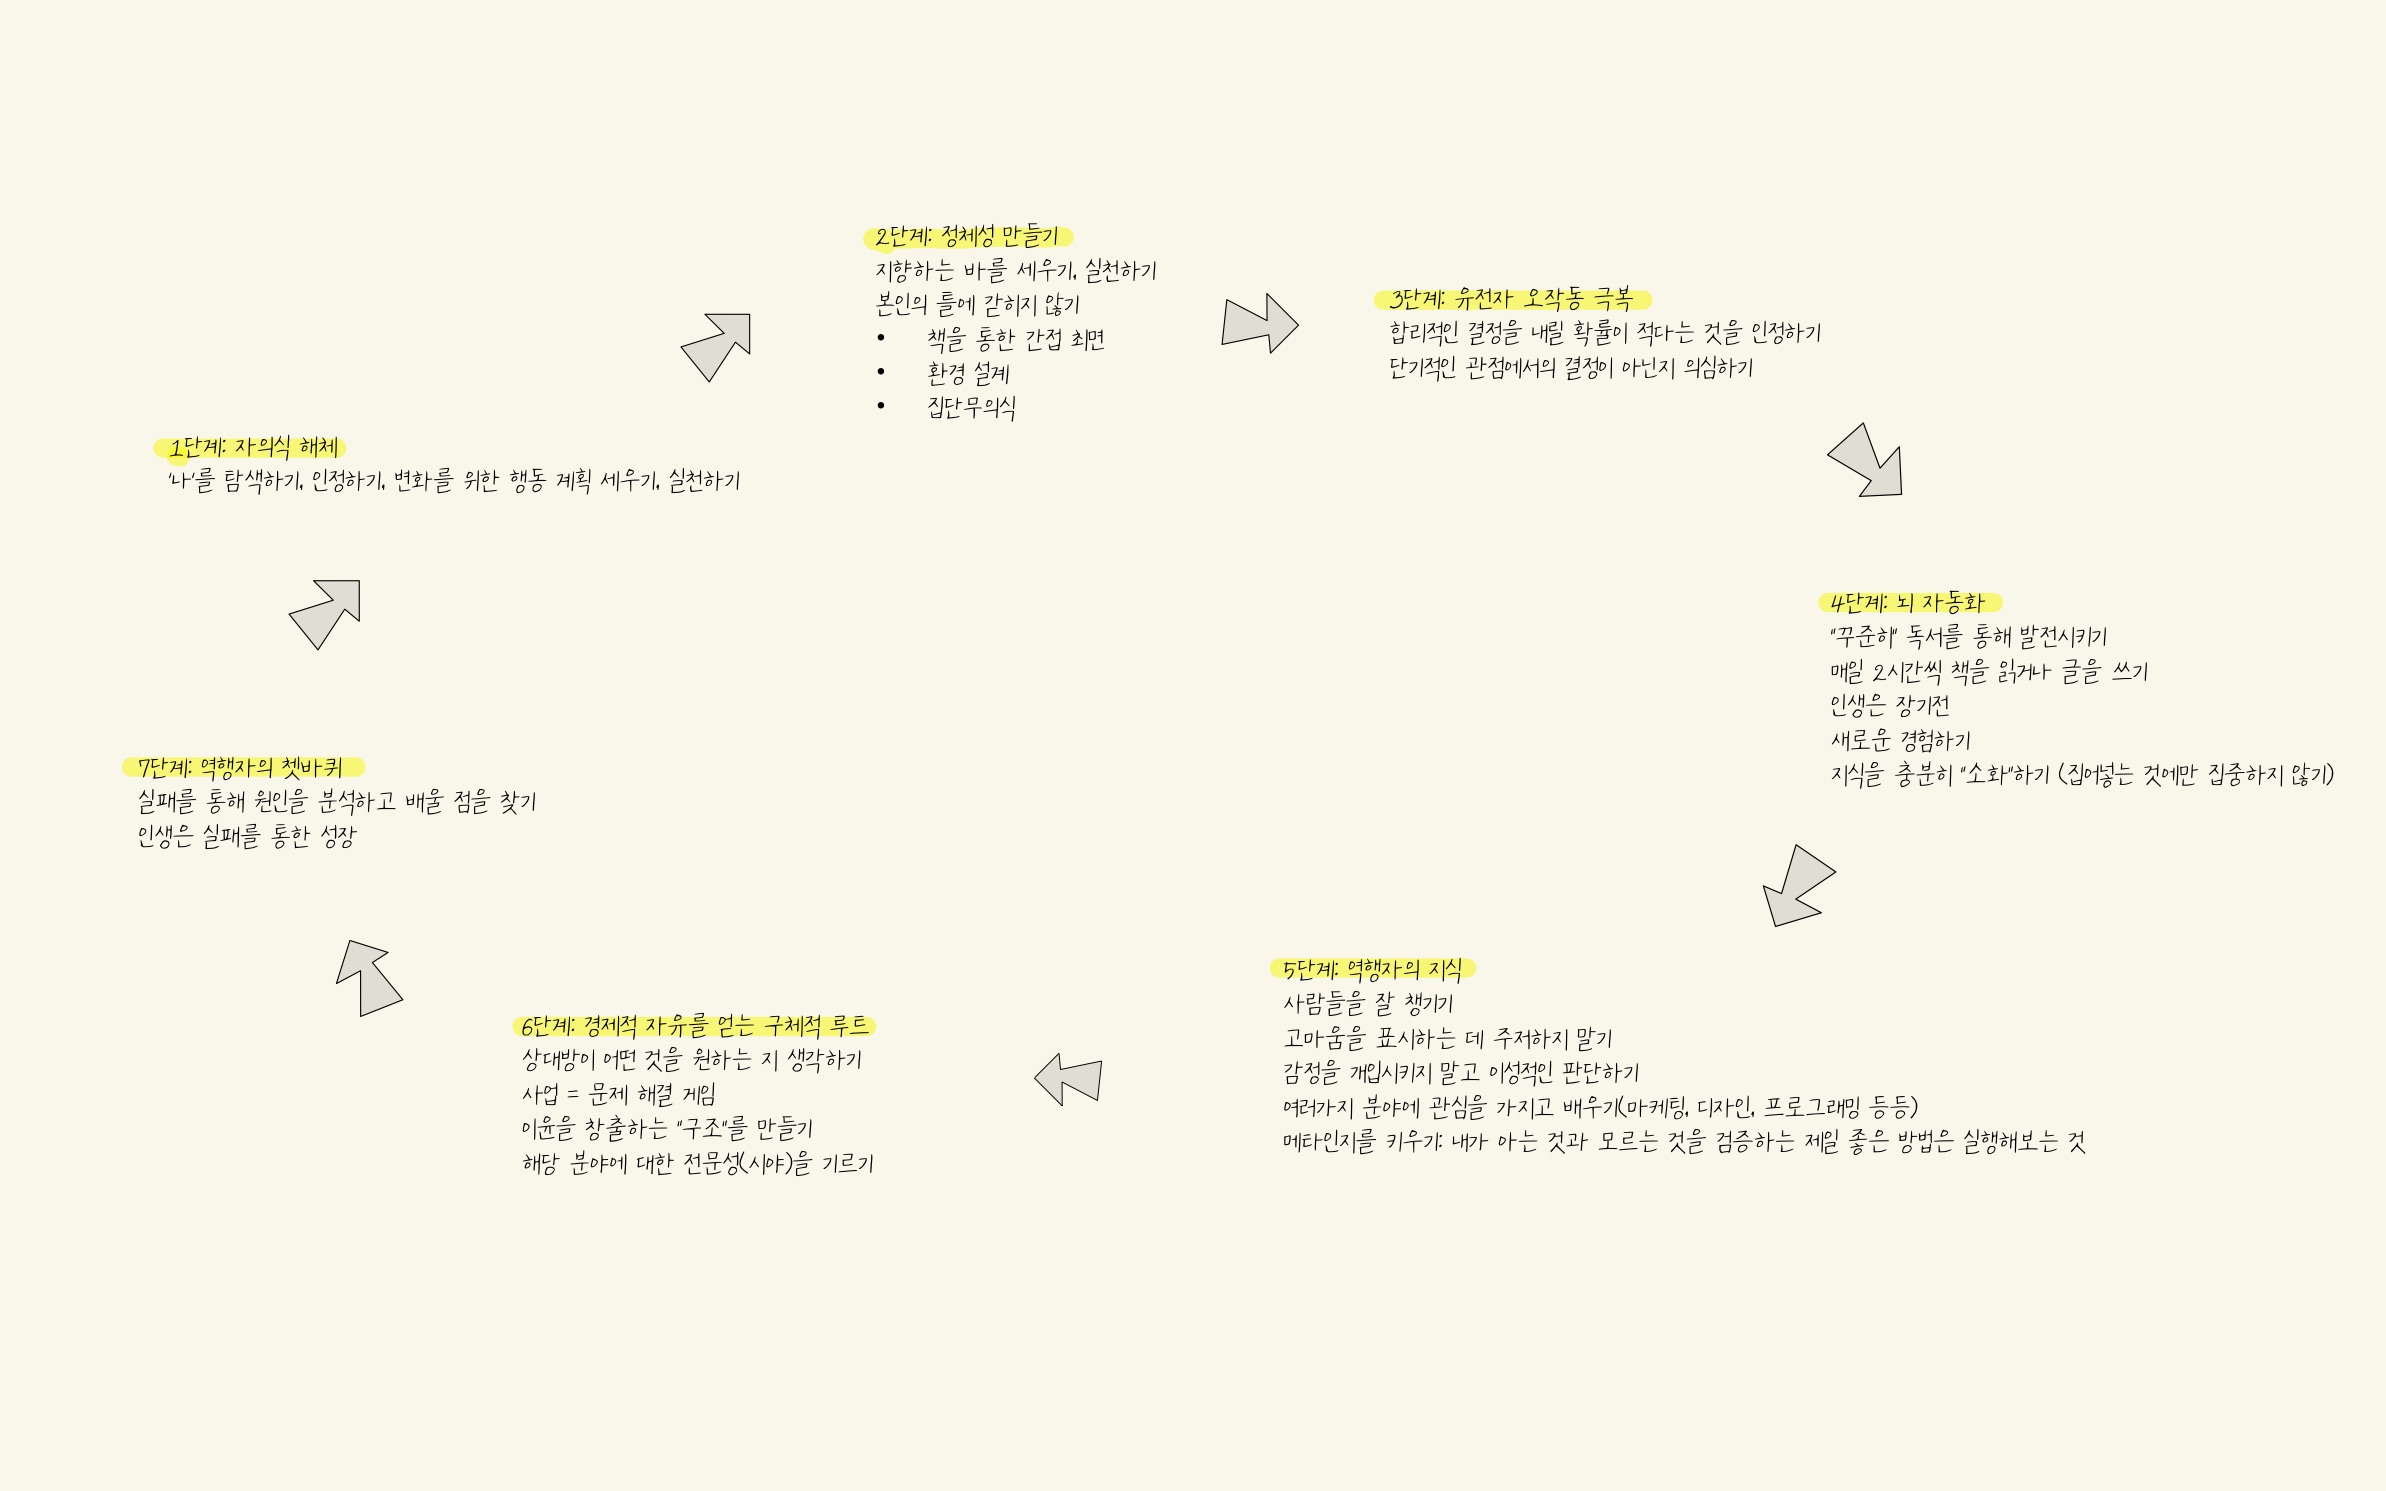 1단계: 자의식 해체
'나'를 탐색하기, 인정하기, 변화를 위한 행동 계획 세우기, 실천하기
2단계: 정체성 만들기
지향하는 바를 세우기, 실천하기
본인의 틀에 갇히지 않기
• 책을 통한 간접 최면
• 환경 설계
• 집단무의식
3단계: 유전자 오작동 극복
합리적인 결정을 내릴 확률이 적다는 것을 인정하기
단기적인 관점에서의 결정이 아닌지 의심하기
4단계: 뇌 자동화
"꾸준히" 독서를 통해 발전시키기
매일 2시간씩 책을 읽거나 글을 쓰기
인생은 장기전
새로운 경험하기
지식을 충분히 "소화"하기 (집어넣는 것에만 집중하지 않기)
5단계: 역행자의 지식
사람들을 잘 챙기기
고마움을 표시하는 데 주저하지 말기
감정을 개입시키지 말고 이성적인 판단하기
여러가지 분야에 관심을 가지고 배우기(마케팅, 디자인, 프로그래밍 등등)
메타인지를 키우기: 내가 아는 것과 모르는 것을 검증하는 제일 좋은 방법은 실행해보는 것
6단계: 경제적 자유를 얻는 구체적 루트
상대방이 어떤 것을 원하는 지 생각하기
사업 = 문제 해결 게임
이윤을 창출하는 "구조"를 만들기
해당 분야에 대한 전문성(시야)을 기르기
7단계: 역행자의 쳇바퀴
실패를 통해 원인을 분석하고 배울 점을 찾기
인생은 실패를 통한 성장